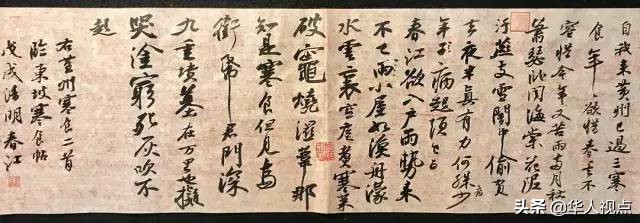 自我来黄州已過三寒
食年〻欲惜春〻去不
容惜今年又苦雨兩月秋
蕭瑟卧聞海棠花泥
汙燕支雪闇中偷負
去夜半真有力何殊少
年子病起須已白
春江欲入户雨勢来
不已雨小屋如漁舟濛〻
水雲裏空庖煮寒菜
破竈燒濕葦那
知是寒食但見烏
銜帋君門深
九重墳墓在万里也擬
哭塗窮死灰吹不
起
右黄州寒食二首
临東坡寒食帖
戊戌清明春江
头条 @华人视点